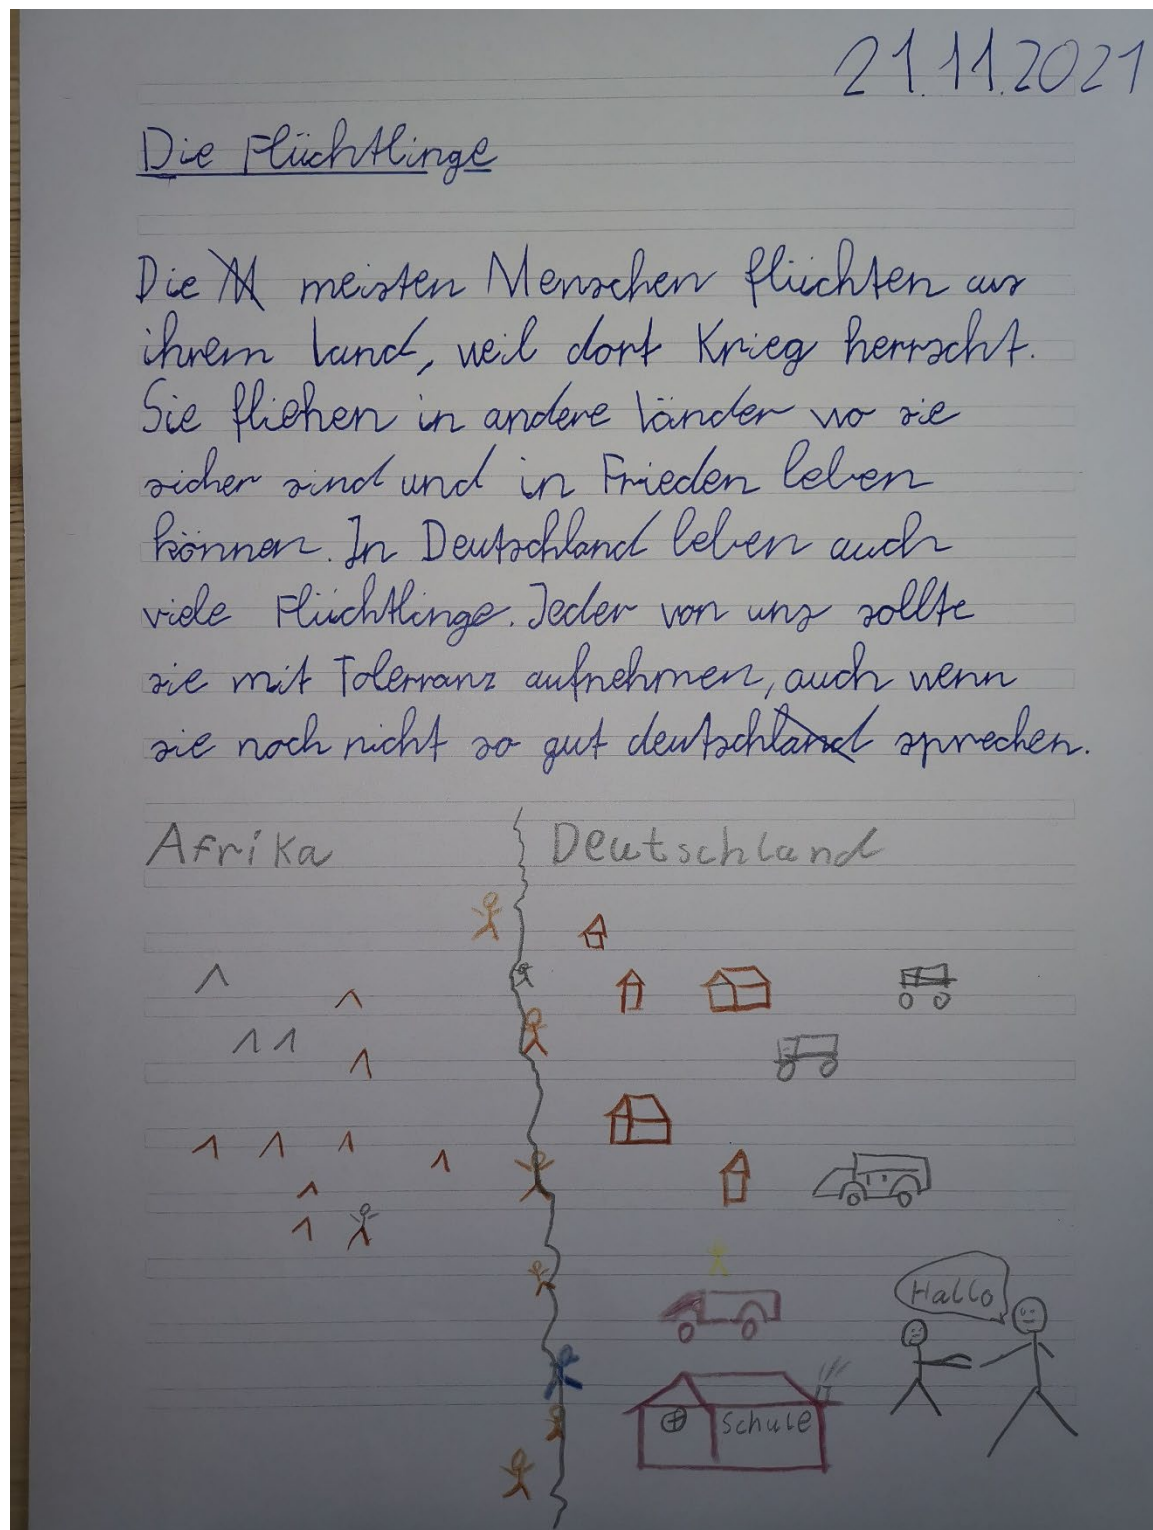 21.11.2021
Die Flüchtlinge
Die meisten Menschen flüchten aus
ihrem Land, weil dort Krieg herrscht.
Sie fliehen in andere Länder wo sie
sicher sind und in Frieden leben
können. In Deutschland leben auch
viele Flüchtlinge. Jeder von uns sollte
sie mit Tolerranz aufnehmen, auch wenn
sie noch nicht so gut deutsch sprechen.
Afrika Deutschland
Hallo
Schule